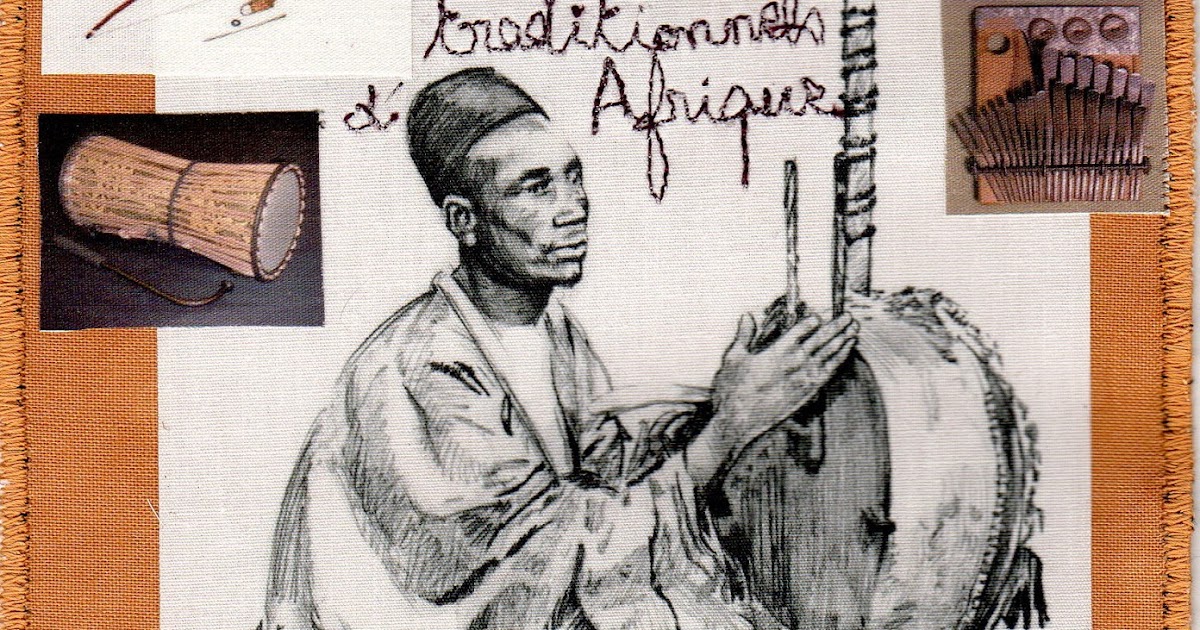 traditionnels
d'Afrique